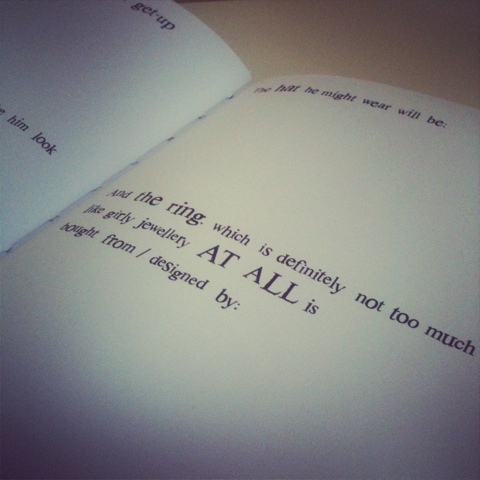 get-up
him look
The hat he might wear will be:
And the ring, which is definitely not too much
like girly jewellery AT ALL is
bought from / designed by: